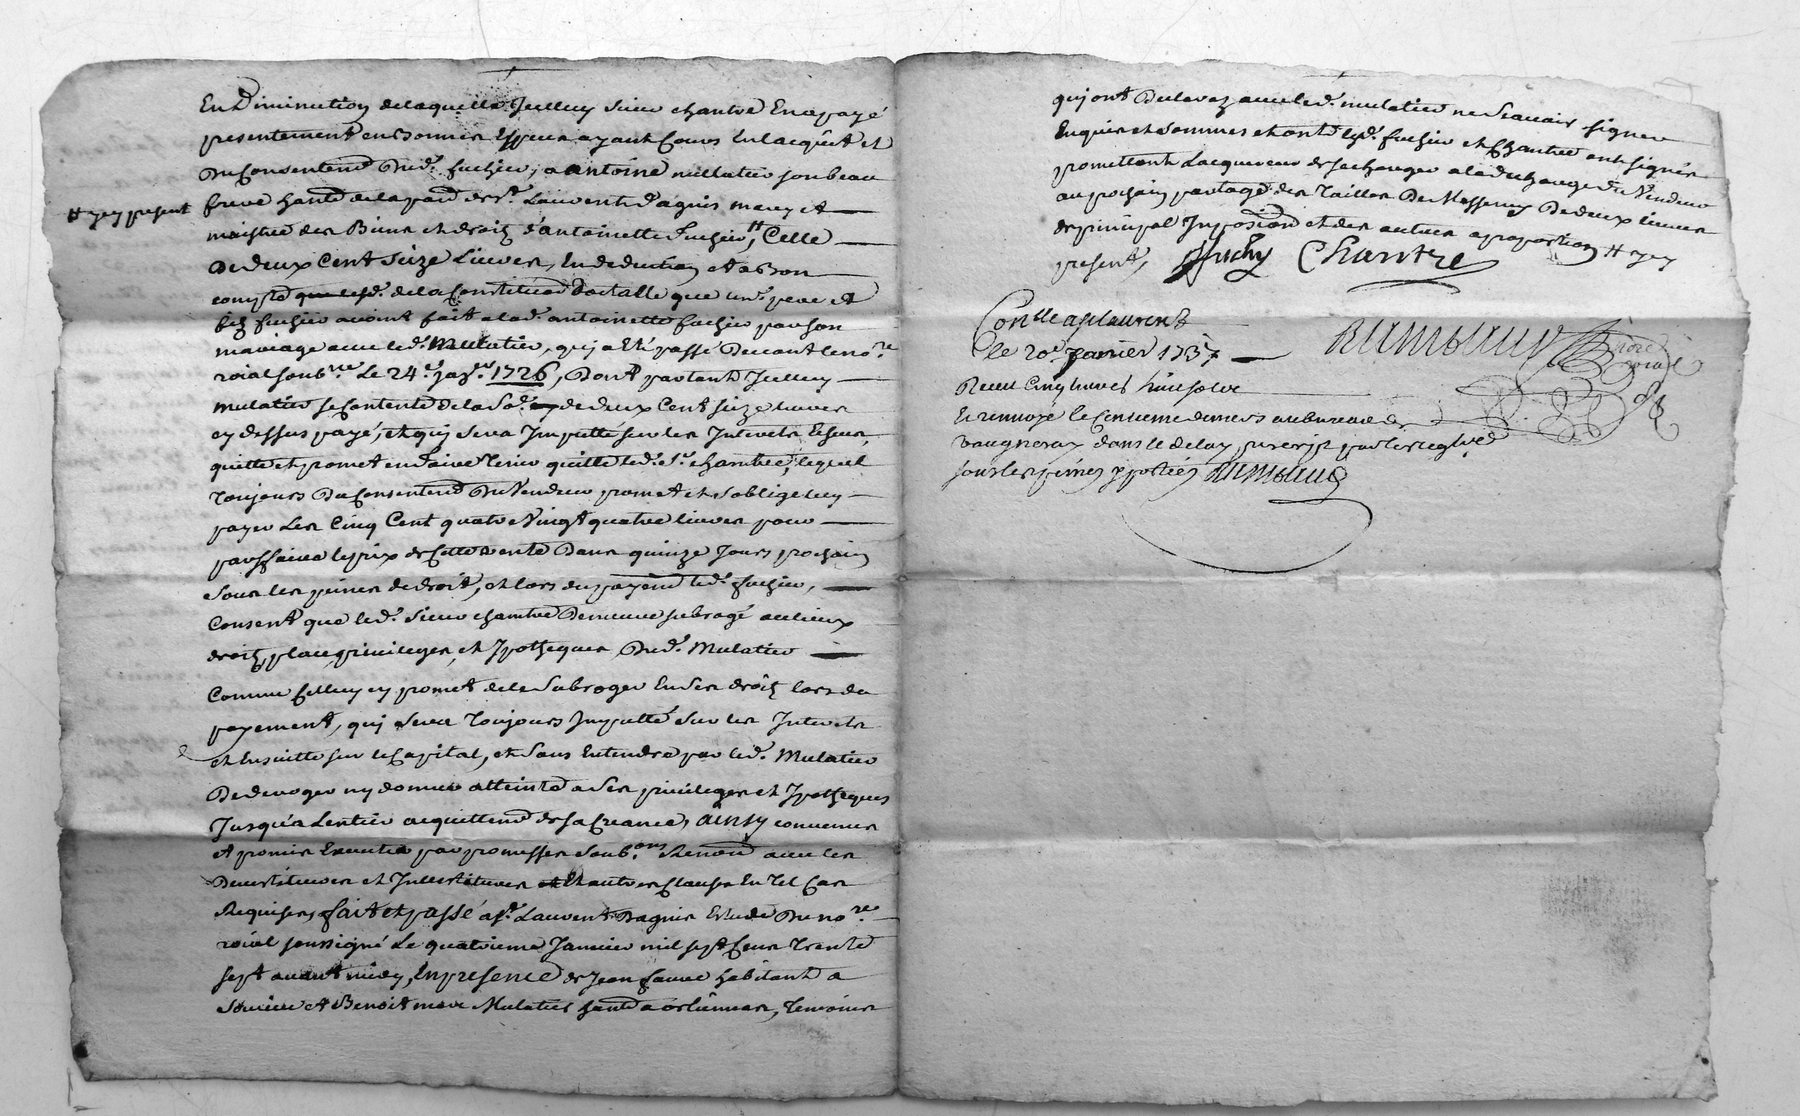 En Diminution de laquelle Icelluy Sieur chantre En a payé
presentement en bonnes Especes ayant Cours En lacquit et
Du Consentem.t Dud. fuchiey, a antoine mulatier son beau
frere habt. de la parr.e de St. Laurent d'agnis mary et
# icy present
maistre des Biens et droits d'antoinette fuchiey # Celle
De deux Cent seize Livres, En deduction et a bon
compte de la Constitution Dotalle que
fils fuchiey avoint fait a lad. antoinette fuchiey par son
mariage avec led. Mulatier, qui a Eté passé Devant le no.re
roial soub.né Le 24.e jan.r 1726, Dont partant Icelluy
Mulatier se Contente de la So.e de deux Cent seize livres
cy dessus payé, et qui sera Imputté sur les Interets
quitte et promet en faire tenir quitte led. s.r chantre, lequel
toujours Du Consentem.t Du Vendeur promet et s'oblige luy
payer Les Cinq Cent quatre Vingt quatre livres pour
parffaire le prix de cette vente Dans quinze Jours prochain
Sous les peines de droit, et lors du payem.t led. fuchiey,
Consent que led. Sieur chantre Demeure subrogé au lieux
droits place privileges et Ipotheques Dud. Mulatier
Comme Icelluy promet de le Subroger En Ses droits lors du
payement, qui Sera toujours Imputté Sur les Interets
et Ensuitte sur le Capital, et Sans Entendre par led. Mulatier
De deroger ny donner atteinte a Ses privileges et Ipotheques
Jusqu'a Lentier acquittem.t de sa Creance, ainsy convenu
et promis Executer par promesses Soub.ons Renon.on avec les
Devestitures et Investitures Et autres Clauses En tel Cas
Requises, fait et passé a St. Laurent Dagnis Etude De no.re
roial soussigné Le quatrieme Janvier mil sept Cent trente
sept avant midy, En presence de Jean faure habitant a
Soucieu et Benoit Mulatier habt. a orlienas, temoins
qui ont Declarez avec led. mulatier ne Scavoir signer
Enquis et Sommés et ont led. fuchiey et Chantre ont signés
promettant Lacquereur de se charger a la decharge du Vendeur
au prochain partage des tailles De Messemy De deux livres
de principal Imposition et des autres a proportion # icy
present, fuchy Chantre
Con.lle a St Laurent
le 20.e janvier 1737
Receu Cinq livres
Et renvoyé le Centieme deniers au bureau de
vaugneray dans le delay prescript par les reglts.
sous les peines y portées